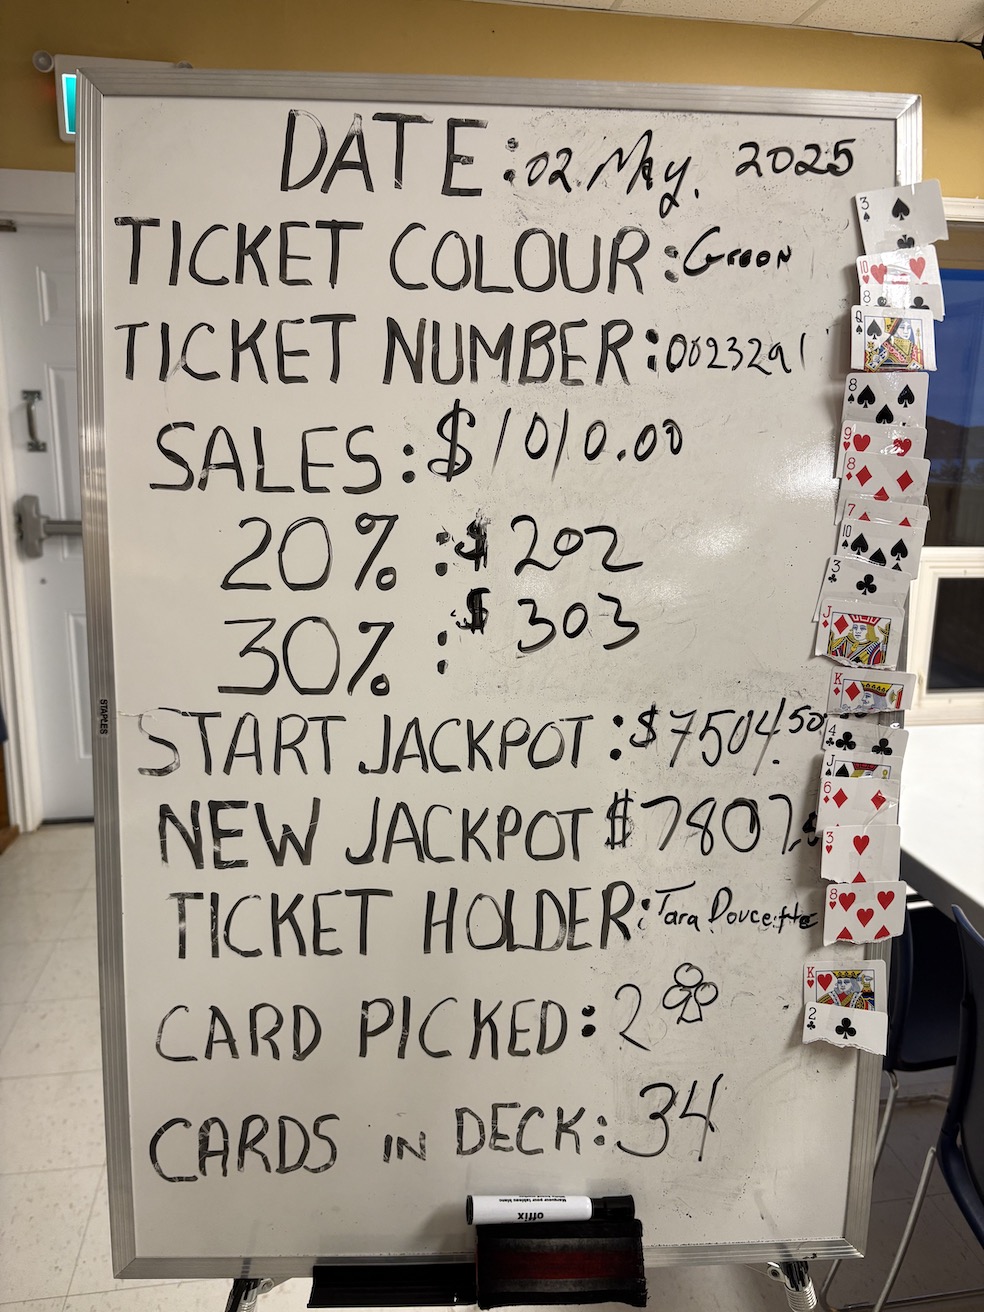 DATE: 02. May. 2025
TICKET COLOUR: Green
TICKET NUMBER: 0023291
SALES: $1010.00
20% : $ 202
30% : $ 303
START JACKPOT: $7504.50
NEW JACKPOT $7807.
TICKET HOLDER: Tara Doucette
CARD PICKED: 2
CARDS IN DECK: 34
STAPLES
offix
3
10
8
Q
8
9
8
7
10
3
J
K
4
J
6
3
8
K
2